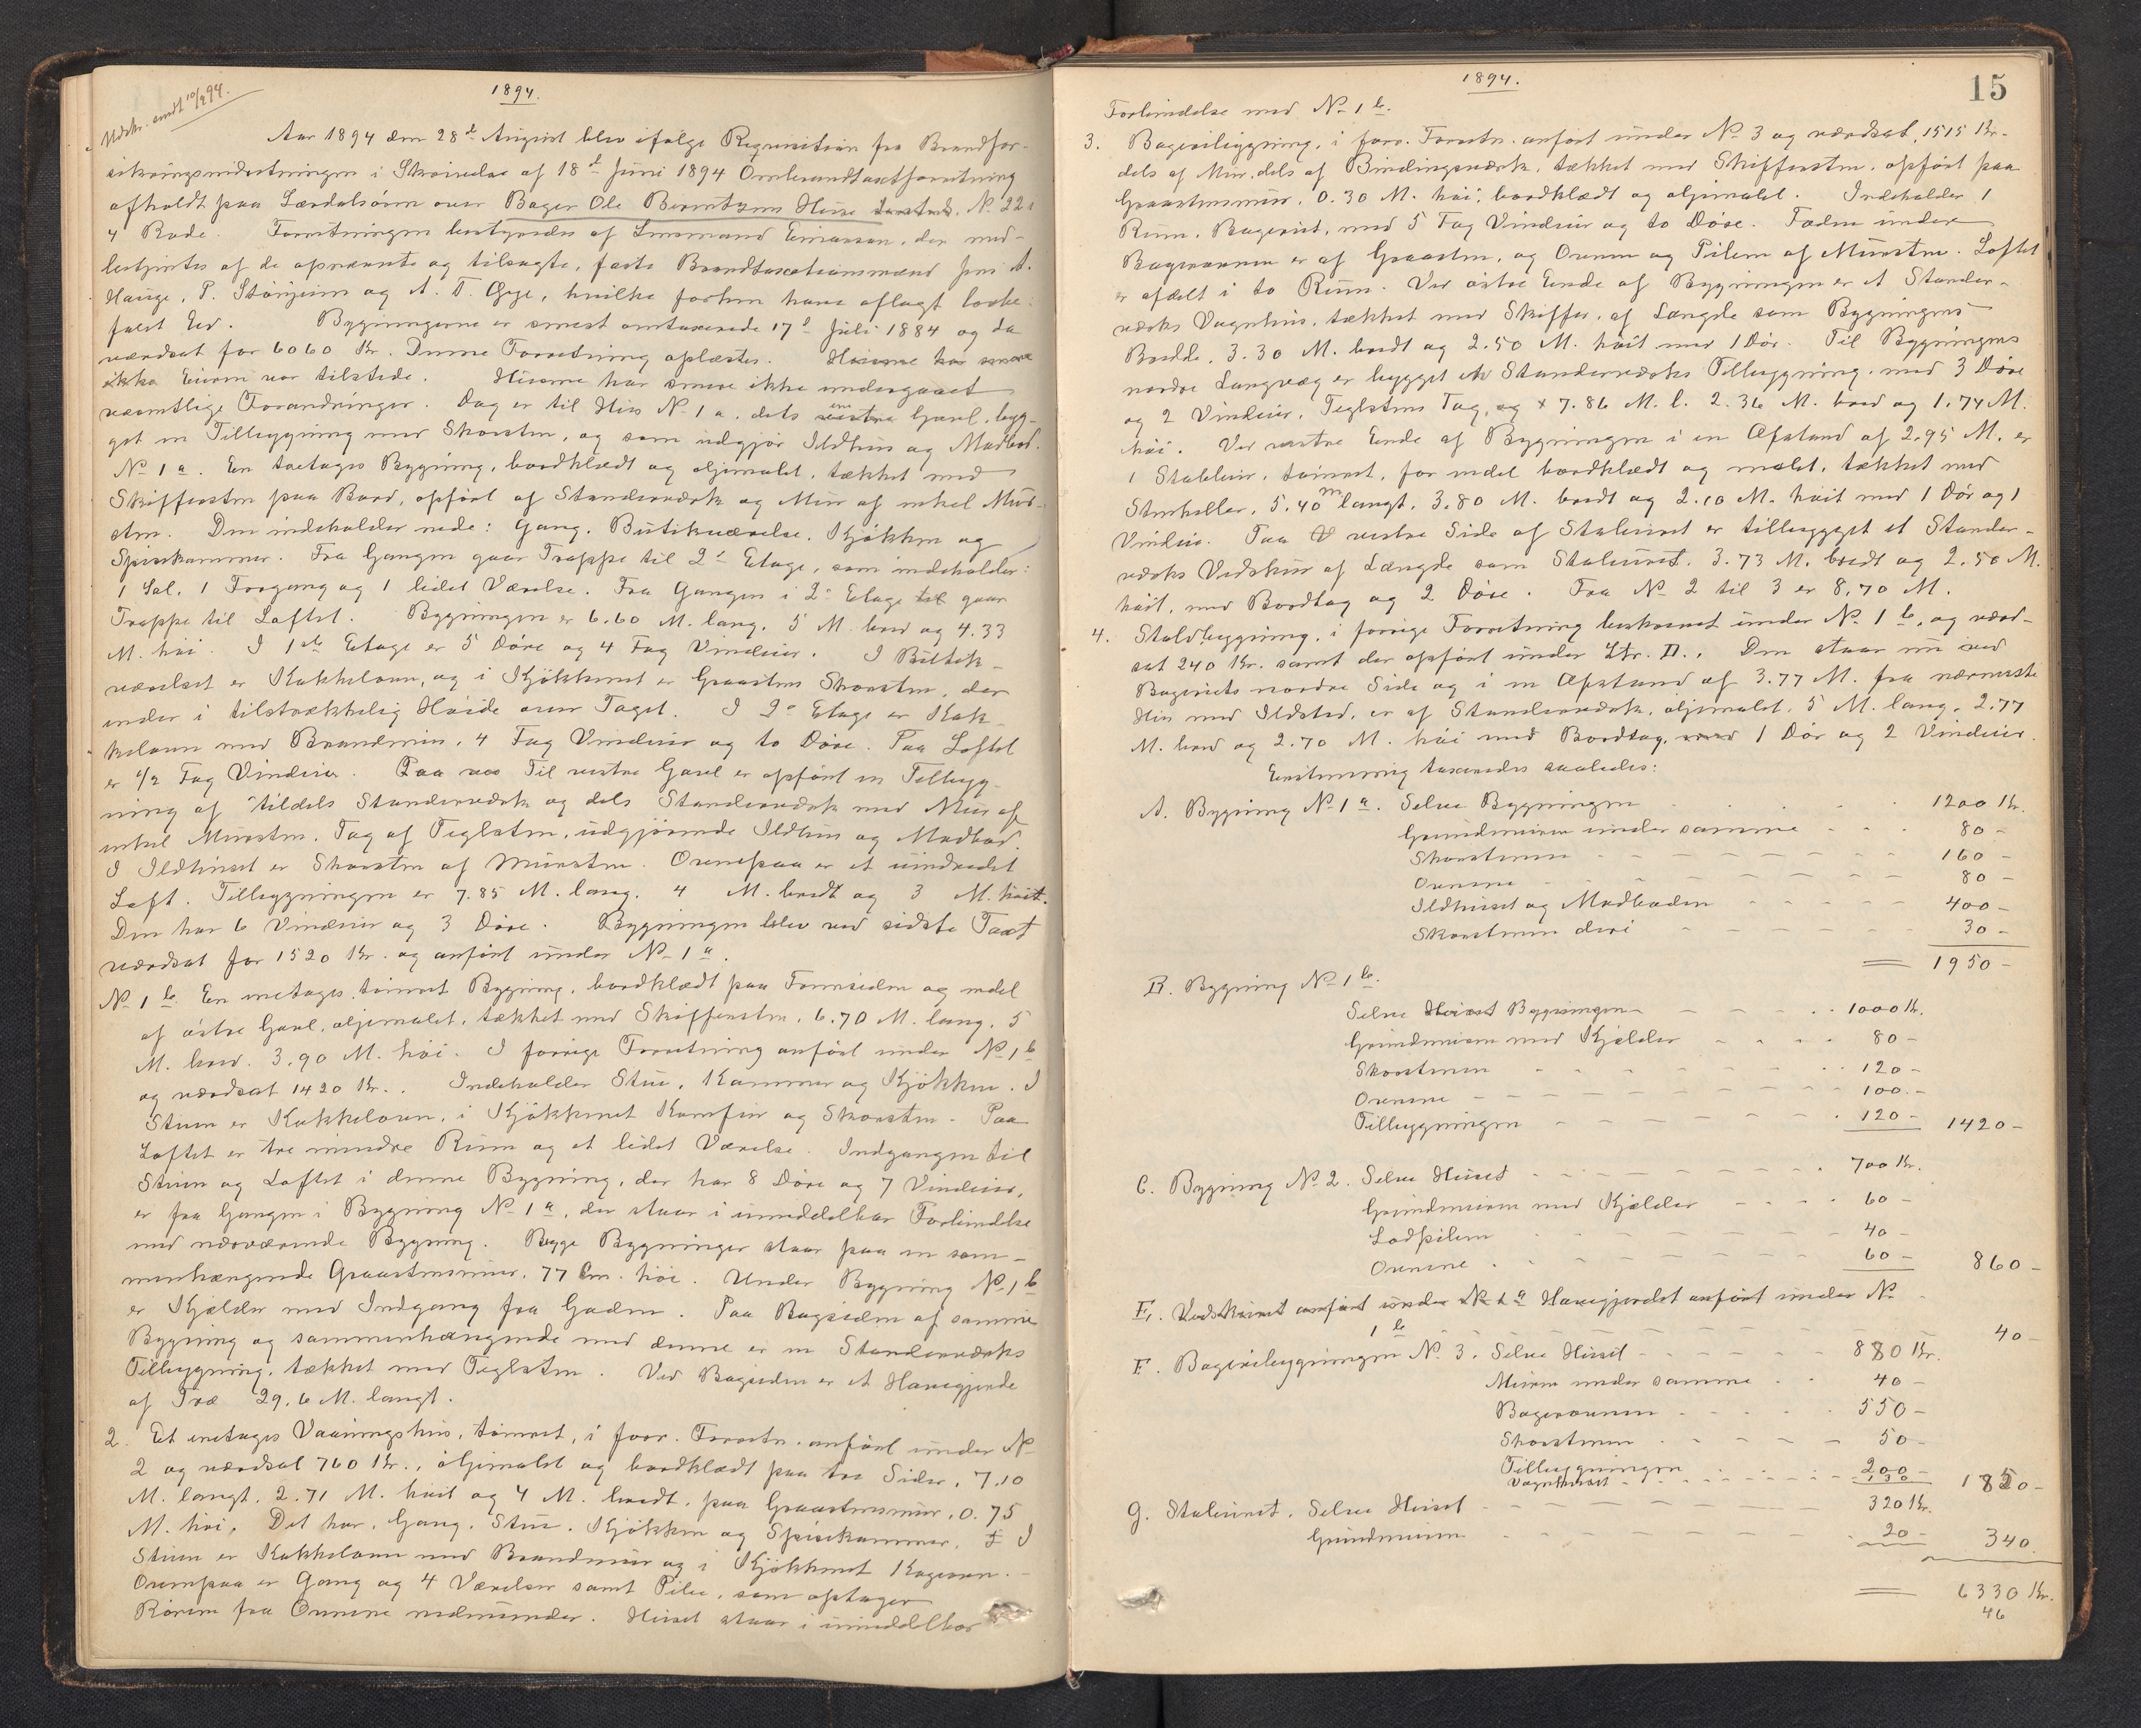 Udskr. sendt 10/9 94.
1894.
Aar 1894 den 28de August blev ifølge Requisition fra Brandfor-
sikringsindretningen i Skrivelse af 18de Juni 1894 Ombrandtaxtforretning
afholdt paa Lærdalsøren over Bager Ole Berentsens Huse No 22 i
4 Rode. Forretningen bestyredes af Lensmand Einarsen, der med-
bestyrtes af de opnævnte og tilsagte, faste Brandtaxationsmænd Jens A.
Hauge, P. Stönjum og A. T. Øye, hvilke forhen have aflagt lovbe-
falet Ed. Bygningerne er senest omtaxerede 17de Juli 1884 og da
værdsat for 6060 Kr. Denne Forretning oplæstes. Husene har senere
ikke Eieren var tilstede. Husene har senere ikke undergaaet
væsentlige Forandringer. Dog er til Hus No 1 a. dets vestre Gavl, byg-
get en Tilbygning med Skorsten, og som udgjør Ildhus og Madbod.
No 1 a. En toetages Bygning, bordklædt og oljemalet, tækket med
Skiffersten paa Bord, opført af Standerværk og Mur af enkel Mur-
sten. Den indeholder nede: Gang, Butikværelse, Kjøkken og
Spisekammer. Fra Gangen gaar Trappe til 2den Etage, som indeholder:
1 Sal, 1 Forgang og 1 lidet Værelse. Fra Gangen i 2den Etage til gaar
Trappe til Loftet. Bygningen er 6.60 M. lang, 5 M. bred og 4.33
M. høi. I 1ste Etage er 5 Døre og 4 Fag Vinduer. I Butik-
værelset er Kakkelovn, og i Kjøkkenet er Graastens Skorsten, der
ender i tilstrækkelig Høide over Taget. I 2den Etage er Kak-
kelovn med Brandmur, 4 Fag Vinduer og to Døre. Paa Loftet
er 1/2 Fag Vinduer. Paa ves Til vestre Gavl er opført en Tilbyg-
ning af tildels Standerværk og dels Standerværk med Mur af
enkel Mursten. Tag af Teglsten, udgjørende Ildhus og Madbod.
I Ildhuset er Skorsten af Mursten. Ovenpaa er et uindredet
Loft. Tilbygningen er 7.85 M. lang, 4 M. bredt og 3 M. høit.
Den har 6 Vinduer og 3 Døre. Bygningen blev ved sidste Taxt
værdsat for 1520 Kr. og anført under No 1 a.
No 1 b. En enetages tömret Bygning, bordklædt paa Forsiden og endel
af østre Gavl, oljemalet, tækket med Skiffersten, 6.70 M. lang, 5
M. bred, 3.90 M. høi. I forrige Forretning anført under No 1 b
og værdsat 1420 Kr. Indeholder Stue, Kammer og Kjøkken. I
Stuen er Kakkelovn, i Kjøkkenet Komfur og Skorsten. Paa
Loftet er tre mindre Rum og et lidet Værelse. Indgangen til
Stuen og Loftet i denne Bygning, der har 8 Døre og 7 Vinduer,
er fra Gangen i Bygning No 1 a, der staar i umiddelbar Forbindelse
med nærværende Bygning. Begge Bygninger staar paa en sam-
menhængende Graastensmur, 77 Cm. høi. Under Bygning No 1 b
er Kjælder med Indgang fra Gaden. Paa Bagsiden af samme
Bygning og sammenhængende med denne er en Standerværks
Tilbygning, tækket med Teglsten. Ved Bagsiden er et Havegjerde
af Træ 29.6 M. langt.
2. Et enetages Vaaningshus, tömret, i forr. Forretn. anført under No
2 og værdsat 760 Kr., oljemalet og bordklædt paa tre Sider, 7.10
M. langt, 2.71 M. høit og 4 M. bredt, paa Graastensmur, 0.75
M. høi. Det har, Gang, Stue, Kjøkken og Spisekammer. I
Stuen er Kakkelovn med Brandmur og i Kjøkkenet Kogeovn.
Ovenpaa er Gang og 4 Værelser samt Pibe, som optager
Rørene fra Ovnene nedenunder. Huset staar i umiddelbar
1894.
15
Forbindelse med No 1 b.
3. Bageribygning, i forr. Forretn. anført under No 3 og værdsat 1515 Kr.
dels af Mur, dels af Bindingsværk, tækket med Skiffersten, opført paa
Graastensmur, 0.30 M. høi, bordklædt og oljemalet. Indeholder 1
Rum, Bageriet, med 5 Fag Vinduer og to Døre. Foden under
Bagerovnen er af Graasten, og Ovnen og Piben af Mursten. Loftet
er afdelt i to Rum. Ved østre Ende af Bygningen er et Stander-
værks Vognhus, tækket med Skiffer, af Længde som Bygningens
Bredde, 3.30 M. bredt og 2.50 M. høit med 1 Dør. Til Bygningens
nordre Langvæg er bygget en Standerværks Tilbygning, med 3 Døre
og 2 Vinduer, Teglstens Tag, og 7.86 M. l. 2.36 M. bred og 1.74 M.
høi. Ved vestre Ende af Bygningen i en Afstand af 2.95 M. er
1 Stabbur, tömret, for endel bordklædt og malet, tækket med
Stenheller, 5.40 m langt, 3.80 M. bredt og 2.10 M. høit med 1 Dör og 1
Vindue. Paa vestre Side af Staburet er tilbygget et Stander-
værks Vedskur af Længde som Staburet, 3.73 M. bredt og 2.50 M.
høit, med Bordtag og 2 Døre. Fra No 2 til 3 er 8.70 M.
4. Staldbygning, i forrige Forretning beskrevet under No 1 b, og værd-
sat 240 Kr. samt der opført under Ltr. D. Den staar nu ved
Bageriets nordre Side og i en Afstand af 3.77 M. fra nærmeste
Hus med Ildsted, er af Standerværk, oljemalet, 5 M. lang, 2.77
M. bred og 2.70 M. høi med Bordtag, med 1 Dør og 2 Vinduer.
Eenstemmig taxeredes saaledes:
A. Bygning No 1 a. Selve Bygningen 1200 Kr.
Grundmuren under samme 80 -
Skorstenen 160 -
Ovnene 80 -
Ildhuset og Madboden 400 -
Skorstenen deri 30 -
1950 -
B. Bygning No 1 b.
Selve Huset Bygningen 1000 Kr.
Grundmuren med Kjælder 80 -
Skorstenen 120 -
Ovnene 100 -
Tilbygningen 120 - 1420 -
C. Bygning No 2. Selve Huset 700 Kr.
Grundmuren med Kjælder 60 -
Lodpiben 40 -
Ovnene 60 - 860 -
E. Vedskuret anført under No 1 a Havegjerdet anført under No
1 b 40 -
F. Bageribygningen No 3. Selve Huset 880 Kr.
Muren under samme 40 -
Bagerovnen 550 -
Skorstenen 50 -
Tilbygningen 200 -
Vognhuset 130 1850 -
G. Staburet, Selve Huset 320 Kr.
Grundmuren 20 - 340.
6330 Kr.
46